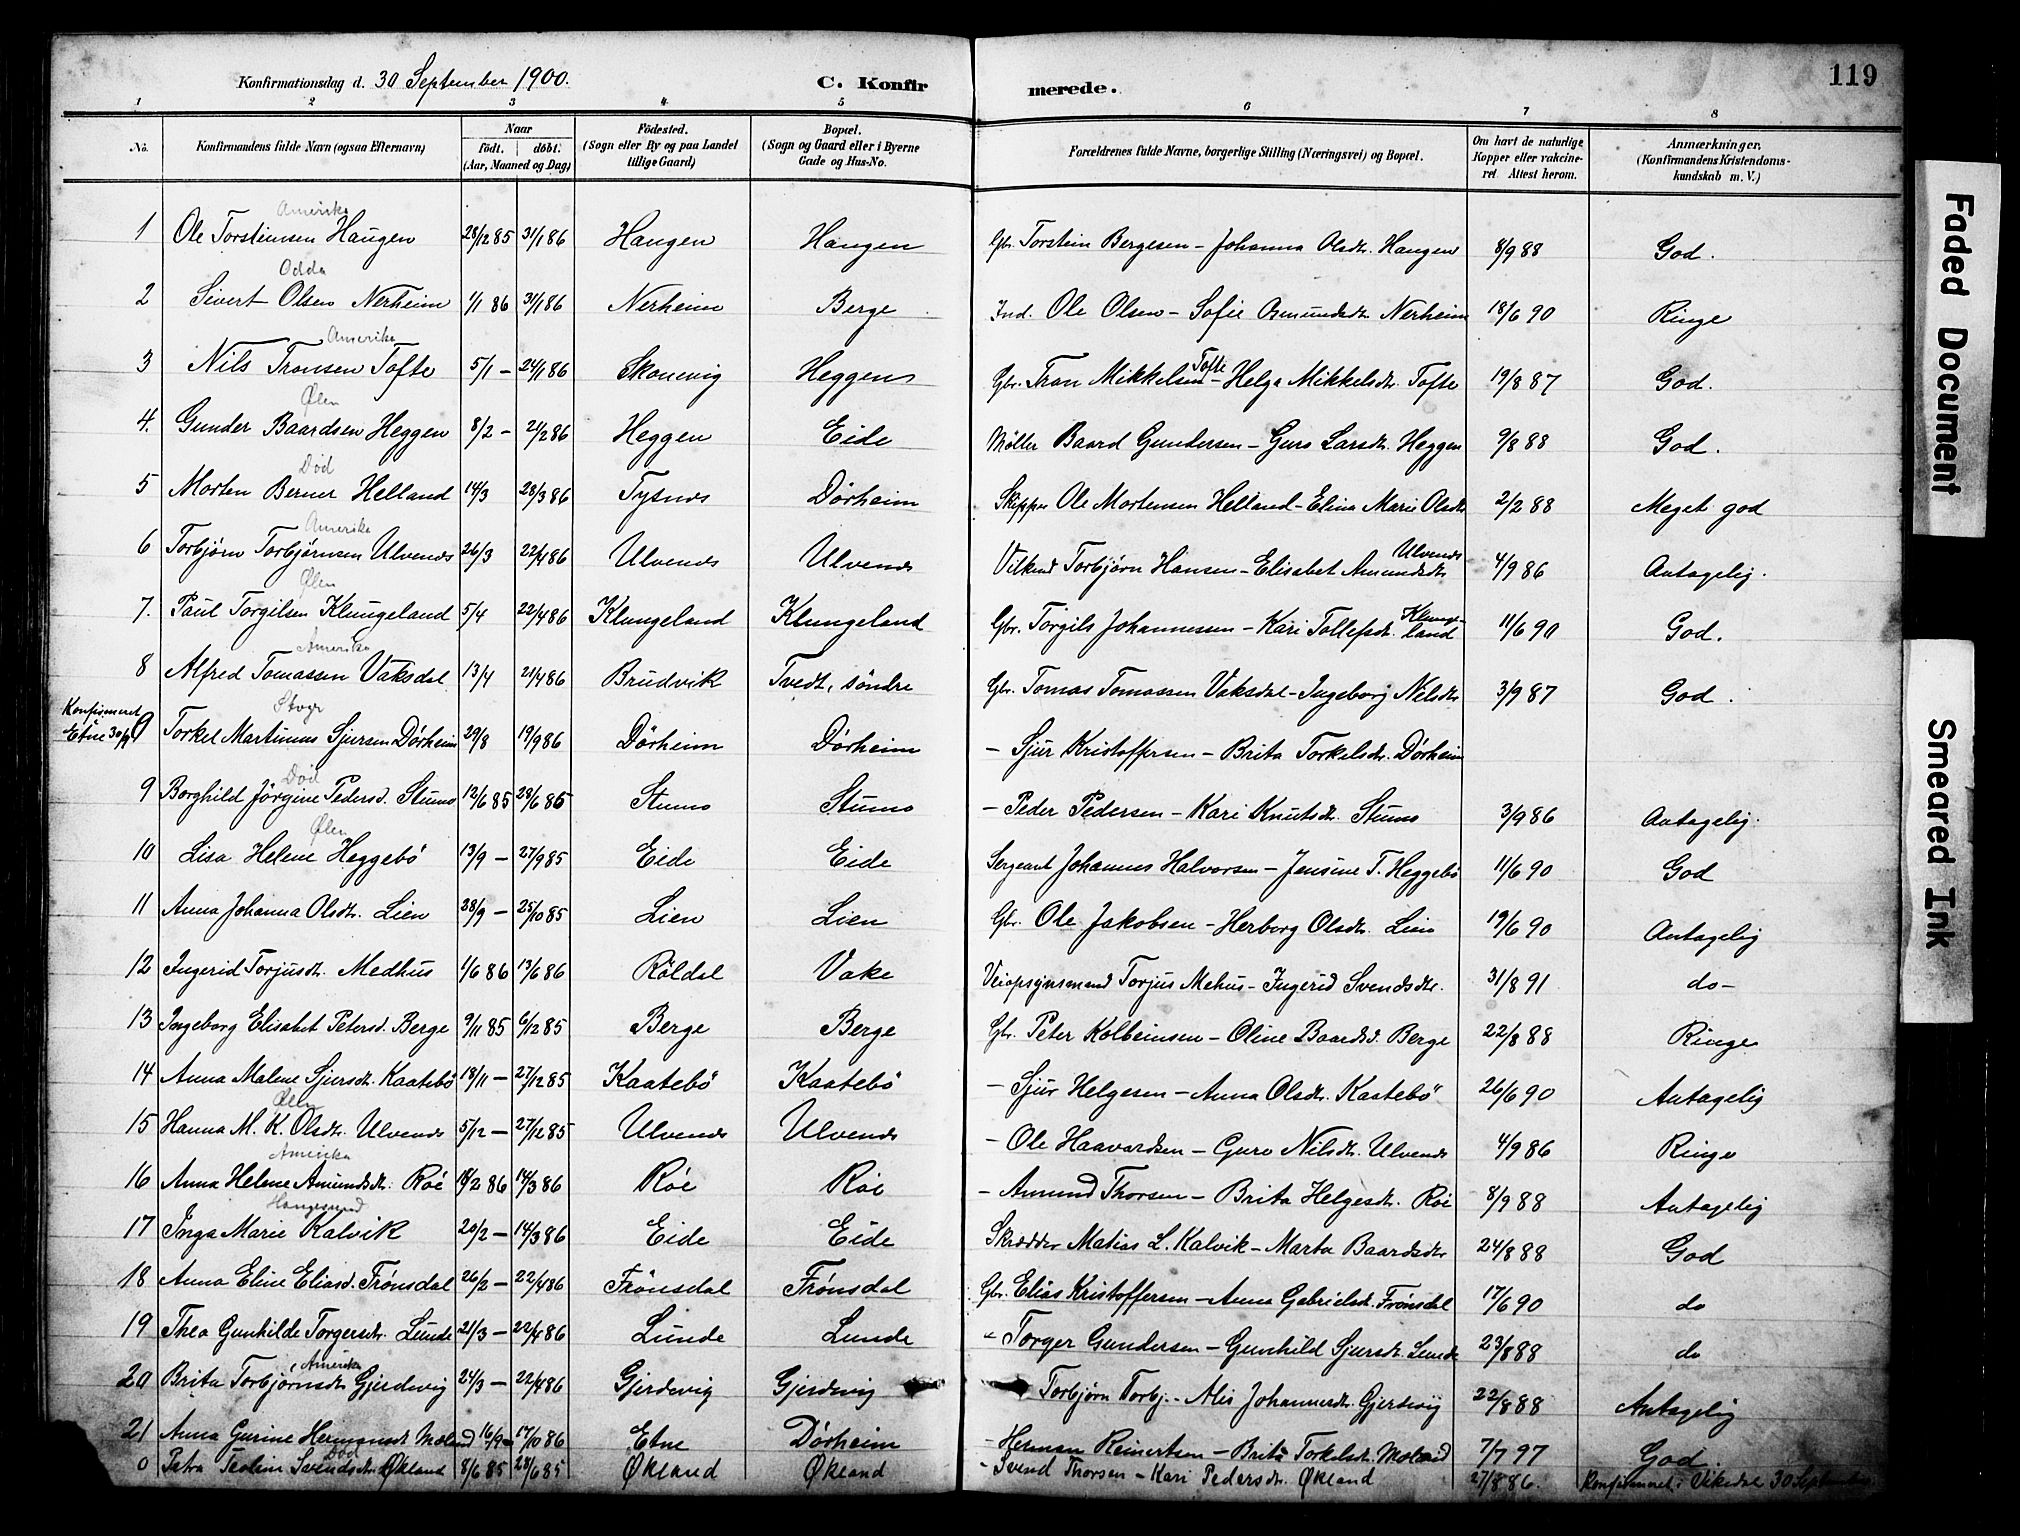 Konfirmationsdag d. 30 September 1900. C. Konfir merede. 119
1 2 3 4 5 6 7 8
No. Konfirmandens fulde Navn (ogsaa Efternavn) Naar födt. döbt. (Aar, Maaned og Dag) Födested. (Sogn eller By og paa Landet tillige Gaard) Bopæl. (Sogn og Gaard eller i Byerne Gade og Hus-No. Forældrenes fulde Navne, borgerlige Stilling (Næringsvei) og Bopæl. Om havt de naturlige Kopper eller vakcineret. Attest herom. Anmærkninger. (Konfirmandens Kristendomskundskab m. V.)
Amerika
1 Ole Torsteinsen Haugen 28/12 85 31/1 86 Haugen Haugen Gbr. Torstein Bergesen - Johanna Olsdtr. Haugen 8/9 88 God.
Odda
2 Sivert Olsen Nerheim 1/1 86 31/1 86 Nerheim Berge Ind. Ole Olsen - Sofie Osmundsdtr. Nerheim 18/6 90 Ringe
Amerika
3 Nils Tronsen Tofte 5/1 - 24/1 86 Skonevig Heggen Gbr. Tron Mikkelsen Tofte - Helga Mikkelsdtr. Tofte 19/8 87 God.
Ølen
4. Gunder Baardsen Heggen 8/2 - 21/2 86 Heggen Eide Møller Baard Gundersen - Guro Larsdtr. Heggen 9/8 88 God.
Död
5 Morten Berner Helland 14/3 28/3 86 Tysnes Dörheim Skipper Ole Mortensen Helland - Elina Marie Olsdtr 2/2 88 Meget god
Amerika
6 Torbjørn Torbjørnsen Ulvenes 26/3 22/4 86 Ulvenes Ulvenes Vilkend Torbjørn Hansen - Elisabet Amundsdtr Ulvenes 4/9 86 Antagelig.
Ølen
7. Paul Torgilsen Klungeland 5/4 22/4 86 Klungeland Klungeland Gbr. Torgils Johannessen - Kari Tollefsdtr. Klungeland 11/6 90 God.
Amerika
8 Alfred Tomassen Vaksdal 13/4 21/4 86 Brudvik Tvedt, söndre Gbr. Tomas Tomassen Vaksdal - Ingeborg Nilsdtr 3/9 87 God.
Konfirmeret Stryr
Etne 30/9 Torkel Martinus Sjursen Dörheim 29/8 19/9 86 Dörheim Dörheim - Sjur Kristoffersen - Brita Torkelsdtr. Dörheim
Död
9 Borghild Jörgine Pedersd. Stumo 12/6 85 28/6 85 Stumo Stumo - Peder Pedersen - Kari Knutsdtr. Stumo 3/9 86 Antagelig.
Ølen
10 Lisa Helene Heggebö 13/9 - 27/9 85 Eide Eide Sergeant Johannes Halvorsen - Jensine T. Heggebö 11/6 90 God
11 Anna Johanna Olsdtr. Lien 28/9 - 25/10 85 Lien Lien Gbr. Ole Jakobsen - Herborg Olsdtr. Lien 19/6 90 Antagelig
12 Ingerid Torjusdtr. Medhus 1/6 86 13/6 86 Röldal Vake Veiopsynsmand Torjus Mehus - Ingerid Svendsdtr. 31/8 91 do -
13 Ingeborg Elisabet Petersd. Berge 9/11 85 6/12 85 Berge Berge Gbr. Peter Kolbeinsen - Oline Baardsd. Berge 22/8 88 Ringe
14 Anna Malene Sjursdtr. Kaatebö 18/11 - 27/12 85 Kaatebö Kaatebö - Sjur Helgesen - Anna Olsdtr. Kaatebö 26/6 90 Antagelig
Ølen
15 Hanna M. K. Olsdtr. Ulvenes 5/12 - 27/12 85 Ulvenes Ulvenes - Ole Haavardsen - Guro Nilsdtr. Ulvenes 4/9 86 Ringe
Amerika
16 Anna Helene Amundsdtr. Röe 14/2 86 14/3 86 Röe Röe - Amund Thorsen - Brita Helgesdtr. Röe 8/9 88 Antagelig
Haugesund
17 Inga Marie Kalvik 20/2 - 14/3 86 Eide Eide Skrædder Matias L. Kalvik - Marta Baardsdtr 24/8 88 God
18 Anna Eline Eliasd. Frönsdal 26/2 - 22/4 86 Frönsdal Frönsdal Gbr. Elias Kristoffersen - Anna Gabrielsd. Frönsdal 17/6 90 do
19 Thea Gunhilde Torgersdtr. Lunde 21/3 - 22/4 86 Lunde Lunde " Torger Gundersen - Gunhild Sjursdtr. Lunde 23/8 88 do
Amerika
20 Brita Torbjörnsdtr Gjerdevig 24/3 - 22/4 86 Gjerdevig Gjerdevig Torbjörn Torbj. - Alis Johannesdtr. Gjerdevig 22/8 88 Antagelig
21 Anna Gurine Hermansdt. Moland 16/9 - 17/10 86 Etne Dörheim - Herman Reinertsen - Brita Torkelsdt. Moland 7/7 97 God.
Död
0 Petra Teoline Svendsdtr. Økland 8/6 85 28/6 85 Økland Økland - Svend Thorsen - Kari Pedersdtr. Økland 27/8 86. Konfirmeret i Vikedal 30 September
Faded Document
Smeared Ink